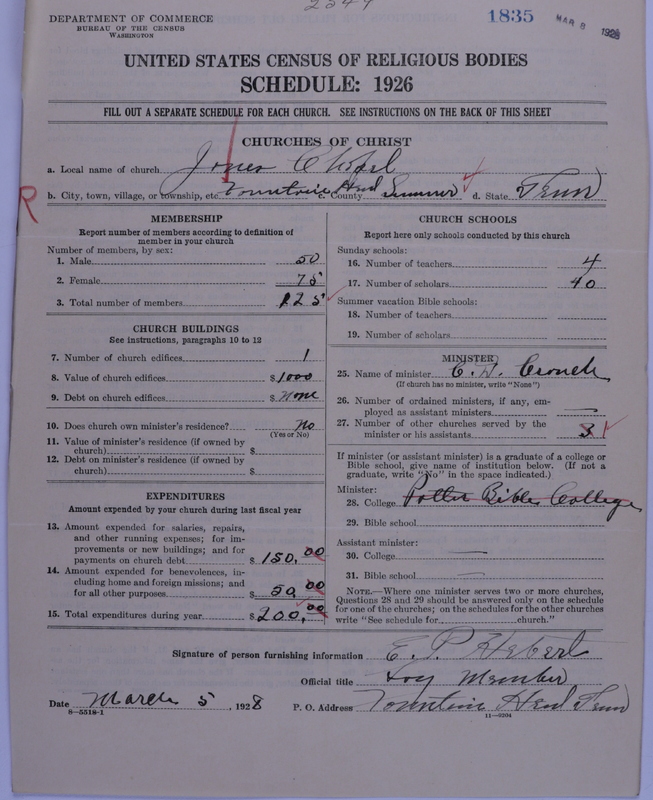 DEPARTMENT OF COMMERCE
BUREAU OF THE CENSUS
WASHINGTON
1835
MAR 8 1928
UNITED STATES CENSUS OF RELIGIOUS BODIES
SCHEDULE: 1926
FILL OUT A SEPARATE SCHEDULE FOR EACH CHURCH. SEE INSTRUCTIONS ON THE BACK OF THIS SHEET
CHURCHES OF CHRIST
a. Local name of church Jones Chapel
b. City, town, village, or township, etc. Fountain Head c. County Sumner d. State Tenn
R
MEMBERSHIP
Report number of members according to definition of
member in your church
Number of members, by sex:
1. Male 50
2. Female 75
3. Total number of members 125
CHURCH BUILDINGS
See instructions, paragraphs 10 to 12
7. Number of church edifices 1
8. Value of church edifices $ 1000
9. Debt on church edifices $ None
10. Does church own minister's residence? No
(Yes or No)
11. Value of minister's residence (if owned by
church) $
12. Debt on minister's residence (if owned by
church) $
EXPENDITURES
Amount expended by your church during last fiscal year
13. Amount expended for salaries, repairs,
and other running expenses; for im-
provements or new buildings; and for
payments on church debt $ 150.00
14. Amount expended for benevolences, in-
cluding home and foreign missions; and
for all other purposes $ 50 00
15. Total expenditures during year $ 200.00
CHURCH SCHOOLS
Report here only schools conducted by this church
Sunday schools:
16. Number of teachers 4
17. Number of scholars 40
Summer vacation Bible schools:
18. Number of teachers
19. Number of scholars
MINISTER
25. Name of minister Crouch
(If church has no minister, write "None")
26. Number of ordained ministers, if any, em-
ployed as assistant ministers —
27. Number of other churches served by the
minister or his assistants 3
If minister (or assistant minister) is a graduate of a college or
Bible school, give name of institution below. (If not a
graduate, write "No" in the space indicated.)
Minister:
28. College Potter Bible College
29. Bible school
Assistant minister:
30. College —
31. Bible school —
NOTE.—Where one minister serves two or more churches,
Questions 28 and 29 should be answered only on the schedule
for one of the churches; on the schedules for the other churches
write "See schedule for church."
Signature of person furnishing information E. P. Hebert
Official title Loy Member
Date March 5, 1928 P. O. Address Fountain Head Tenn
8—5518-1
11—9204